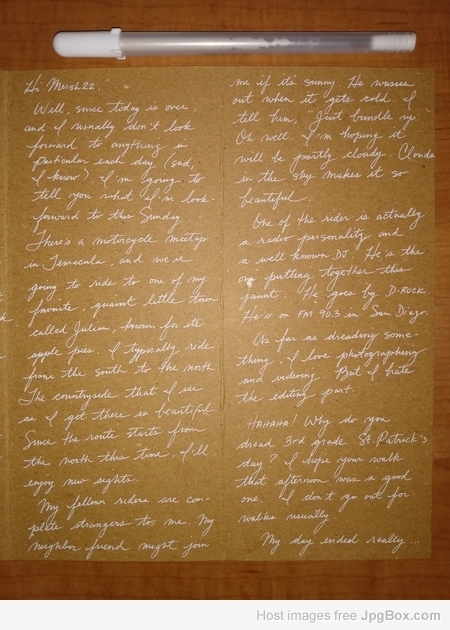 Hi Mersh22,
Well, since today is over,
and I usually don't look
forward to anything in
particular each day (sad,
I know) I'm going to
tell you what I'm look-
forward to this Sunday.
There's a motorcycle meetup
in Temecula, and we're
going to ride to one of my
favorite, quaint little town
called Julian, known for its
apple pies. I typically ride
from the south to the north
The countryside that I see
as I get there is beautiful.
Since the route starts from
the north this time. I'll
enjoy new sights.
My fellow riders are com-
plete strangers to me. My
neighbor friend might join
me if it's sunny. He wusses
out when it gets cold. I
tell him, "Just bundle up.
Oh well. I'm hoping it
will be partly cloudy. Clouds
in the sky makes it so
beautiful.
One of the rider is actually
a radio personality and
a well known DJ. He's the
on putting together this
jaunt. He goes by D-ROCK.
He's on FM 90.3 in San Diego.
As far as dreading some-
thing, I love photographing
and videoing. But I hate
the editing part.
HAHAHA! Why do you
dread 3rd grade St. Patrick's
day? I hope your walk
that afternoon was a good
one. I don't go out for
walks usually.
My day ended really...
Host images free JpgBox.com